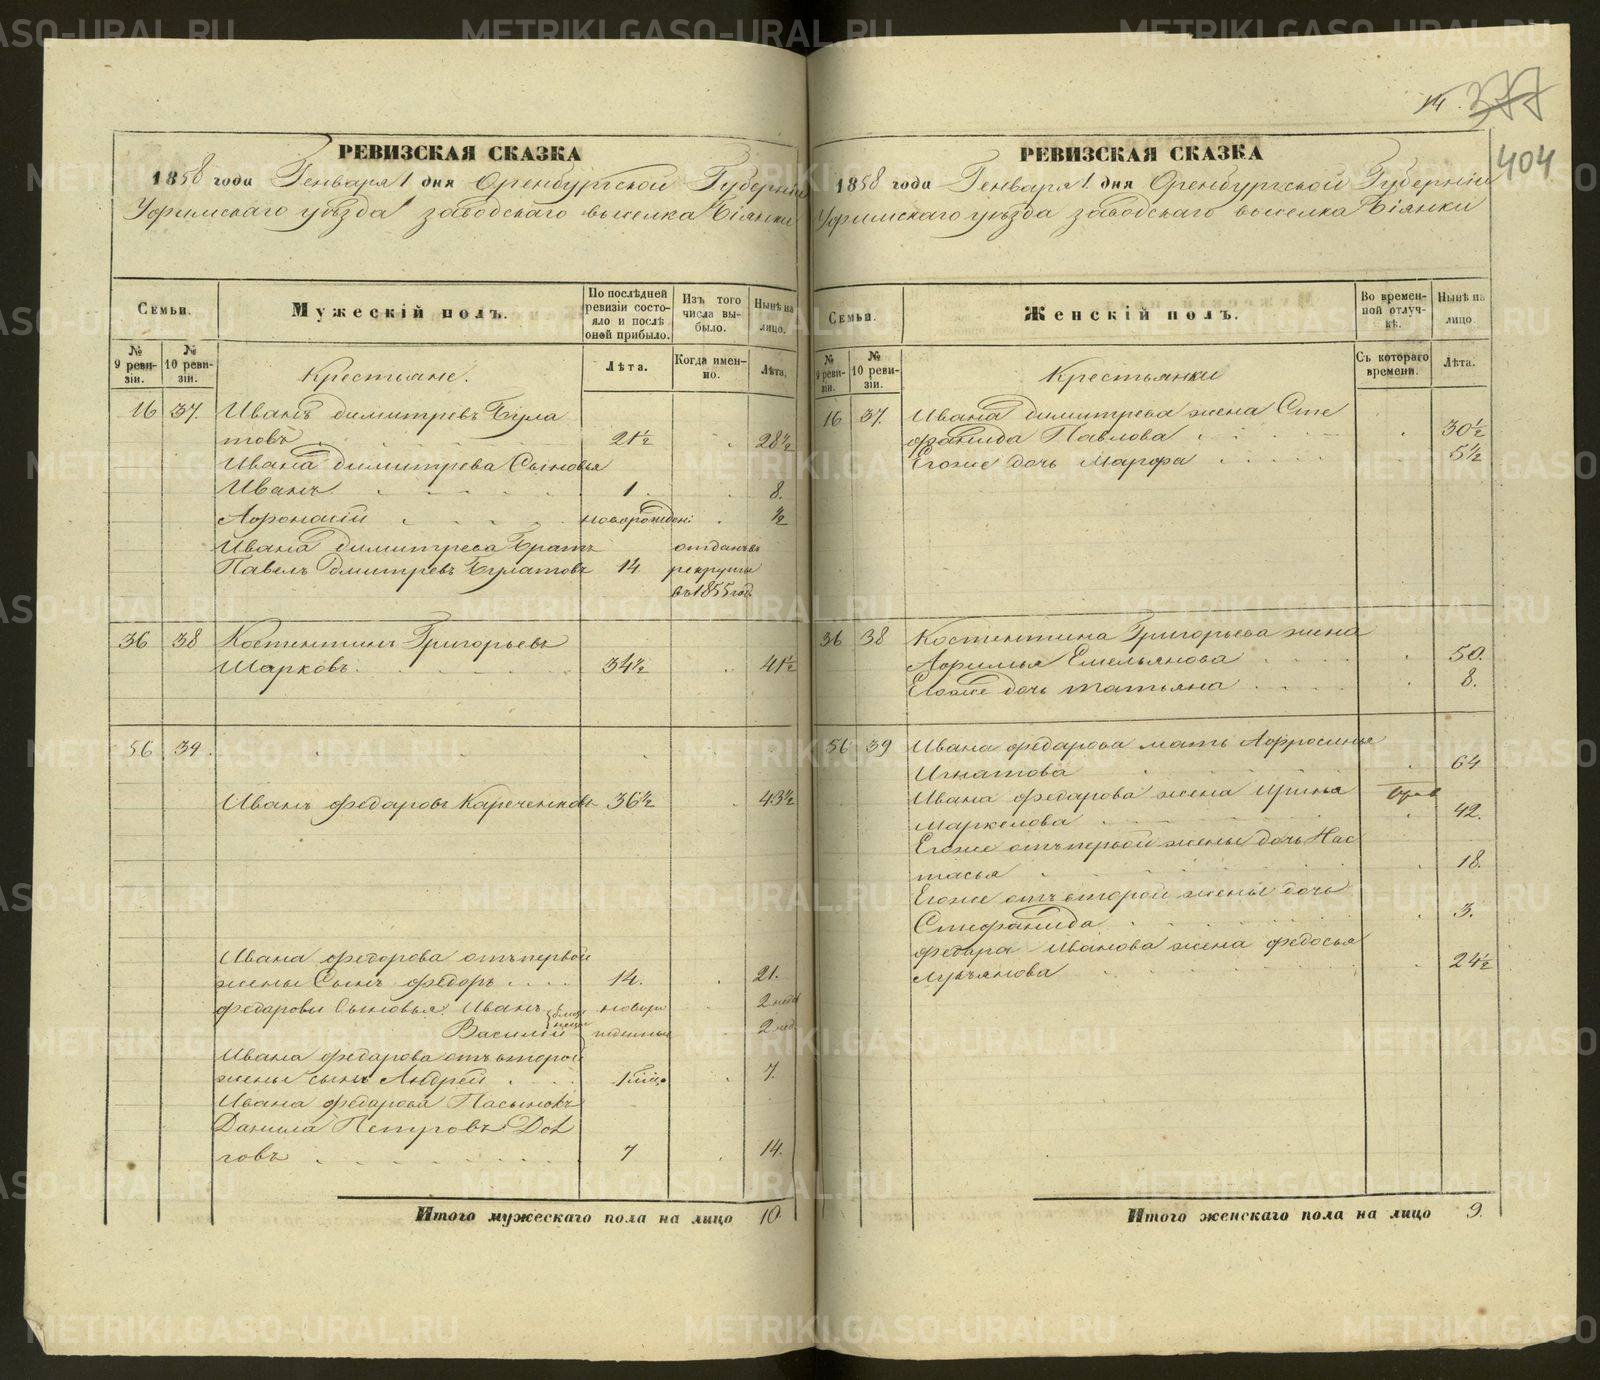 14. 377
404
РЕВИЗСКАЯ СКАЗКА
1858 года Генваря 1 дня Оренбургской Губерніи
Уфимскаго уѣзда заводскаго выселка Біянки
Семьи.
Мужескій полъ.
По послѣдней ревизіи состояло и послѣ оней прибыло.
Изъ того числа выбыло.
Нынѣ на лицо.
№ 9 ревизіи.
№ 10 ревизіи.
Крестьяне.
Лѣта.
Когда именно.
Лѣта.
16 37. Иванъ Димитревъ Була
товъ 21½ 28½
Ивана Димитрева Сыновья
Иванъ 1. 8.
Афонасій новорожден: ½
Ивана Димитрева Братъ отданъ въ
Павелъ Дмитревъ Булатовъ 14 рекруты
въ 1855 год.
36 38 Костентинъ Григорьевъ
Шарковъ. 34½ 41½
56 39
Иванъ Федаровъ Кареченковъ 36½ 43½
Ивана Федорова отъ первой
жены Сынъ Федоръ 14. 21.
Федаровы Сыновья Иванъ близ новоро 2 нед
Василій нецы жденные 2 нед
Ивана Федарова отъ второй
жены сынъ Андрей 7.
Ивана Федарова Пасынокъ
Данила Петровъ Дол
говъ 7 14.
Итого мужескаго пола на лицо 10
РЕВИЗСКАЯ СКАЗКА
1858 года Генваря 1 дня Оренбургской Губерніи
Уфимскаго уѣзда заводскаго выселка Біянки
Семьи.
Женскій полъ.
Во временной отлучкѣ.
Нынѣ на лицо.
№ 9 ревизіи.
№ 10 ревизіи.
Крестьянки
Съ котораго времени.
Лѣта.
16 37. Ивана Димитрева жена Сте
фанида Павлова 30½
Егоже дочь Марфа 5½
36 38 Костентина Григорьева жена
Афимья Емельянова 50.
Егоже дочь Татьяна 8.
56 39 Ивана Федарова мать Афросинья
Игнатова 64
Ивана Федарова жена Ирина
Маркелова 42.
Егоже отъ первой жены дочь Нас
тасья 18.
Егоже отъ второй жены дочь
Стефанида 3.
Федара Иванова жена Федосья
Лукъянова 24½
Итого женскаго пола на лицо 9.
METRIKI.GASO-URAL.RU